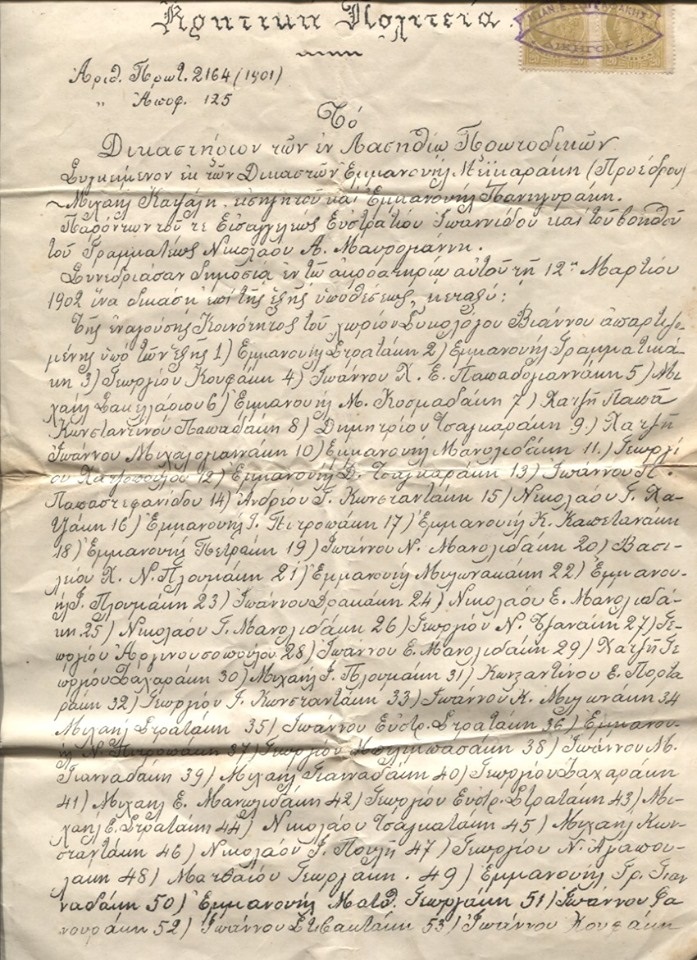 Κρητική Πολιτεία
Ἀριθ. Πρωτ. 2164 (1901)
„ Ἀποφ. 125
Τό
Δικαστήριον τῶν ἐν Λασηθίῳ Πρωτοδικῶν
Συγκείμενον ἐκ τῶν Δικαστῶν Ἐμμανουήλ (Προέδρου)
Μιχαήλ εἰσηγητοῦ καί Ἐμμανουήλ Πανηγυράκη.
Παρόντων τοῦ τε Εἰσαγγελέως Εὐστρατίου Ἰωαννίδου καί τοῦ βοηθοῦ
τοῦ Γραμματέως Νικολάου Α. Μαυρογιάννη.
Συνεδριάσαν δημοσίᾳ ἐν τῷ ἀκροατηρίῳ αὐτοῦ τῇ 12ῃ Μαρτίου
1902 ἵνα δικάσῃ ἐπί τῆς ἑξῆς ὑποθέσεως, μεταξύ:
Τῆς ἐναγούσης Κοινότητος τοῦ χωρίου Συκολόγου Βιάννου ἀπαρτιζο-
μένης ὑπό τῶν ἑξῆς 1) Ἐμμανουήλ Στρατάκη 2) Ἐμμανουήλ Γραμματικά-
κη 3) Γεωργίου Κουφάκη 4) Ἰωάννου Χ. Ε. Παπαδογιαννάκη 5) Μι-
χαήλ Σακελλάριου 6) Ἐμμανουήλ Μ. Κοσμαδάκη 7) Χατζῆ Παπᾶ
Κωνσταντίνου Παπαδάκη 8) Δημητρίου Τσαγκαράκη 9) Χατζῆ
Ἰωάννου Μιχαλογιαννάκη 10) Ἐμμανουήλ Μανολιδάκη 11.) Γεωργί-
ου 12) Ἐμμανουήλ Δ. Τσαγκαράκη 13) Ἰωάννου Π.
Παπαστεφανίδου 14) Ἀνδρέου Γ. Κωνσταντάκη 15) Νικολάου Γ. Χα-
τζάκη 16) Ἐμμανουήλ Γ. Πετροπάκη 17) Ἐμμανουήλ Κ. Καπετανάκη
18) Ἐμμανουήλ Πετράκη 19) Ἰωάννου Ν. Μανολιδάκη 20) Βασι-
λείου Χ. Ν. Πλουμάκη 21) Ἐμμανουήλ Μυλωνακάκη 22) Ἐμμανου-
ήλ Γ. Πλουμάκη 23) Ἰωάννου Δρακάκη 24) Νικολάου Ε. Μανολιδά-
κη 25) Νικολάου Γ. Μανολιδάκη 26) Γεωργίου Ν. Τζανάκη 27) Γε-
ωργίου Ἀργινουσοπούλου 28) Ἰωάννου Ε. Μανολιδάκη 29) Χατζῆ Γε-
ωργίου Ζαχαράκη 30) Μιχαήλ Γ. Πλουμάκη 31) Κωνσαντίνου Ε. Πορτα-
ράκη 32) Γεωργίου Γ. Κωνσταντάκη 33) Ἰωάννου Κ. Μυλωνάκη 34
Μιχαήλ Στρατάκη 35) Ἰωάννου Εὐστρ. Στρατάκη 36) Ἐμμανου-
ήλ Ν. Πετροπάκη 37) Γεωργίου 38) Ἰωάννου Μ.
Γιανναδάκη 39) Μιχαήλ Γιανναδάκη 40) Γεωργίου Ζαχαράκη
41) Μιχαήλ Ε. Μανωλιδάκη 42) Γεωργίου Εὐστρ. Στρατάκη 43) Μι-
χαήλ Ε. Στρατάκη 44) Νικολάου Τσαγκατάκη 45) Μιχαήλ Κων-
σταντάκη 46) Νικολάου Γ. Πουλῆ 47) Γεωργίου Ν. Ἀγαπου-
λάκη 48) Ματθαίου Γεωργάκη. 49) Ἐμμανουήλ Γρ. Γιαν-
ναδάκη 50) Ἐμμανουήλ Ματθ. Γεωργάκη 51) Ἰωάννου Φα-
νουράκη 52) Ἰωάννου Στιβακτάκη 53) Ἰωάννου Κουφάκη